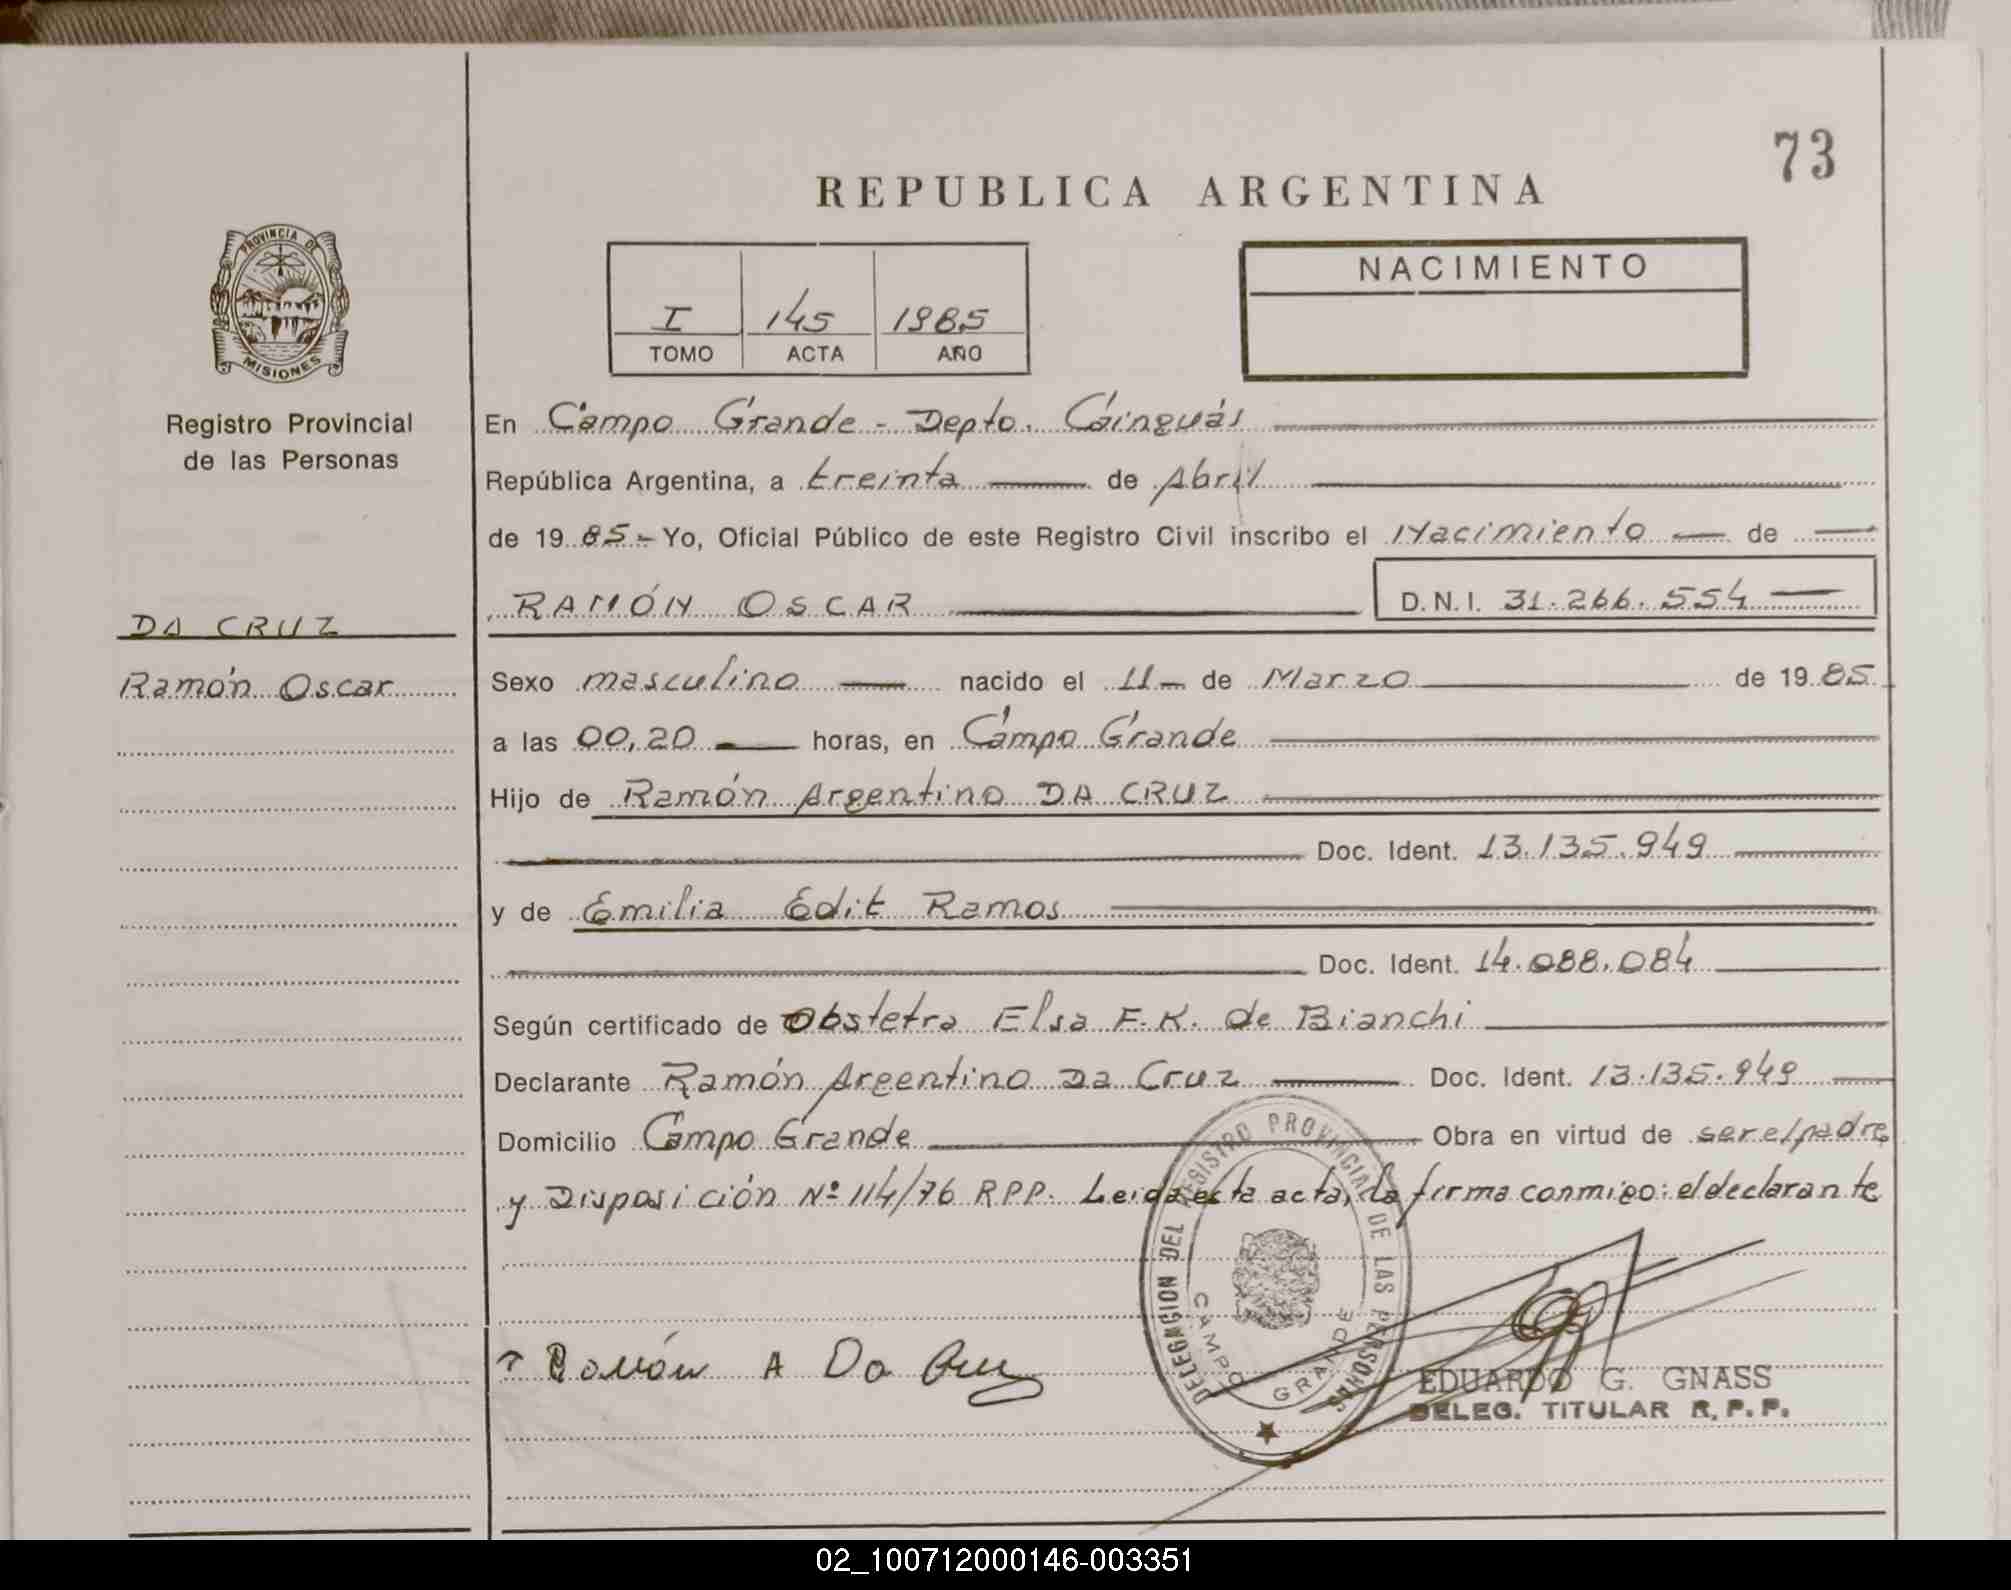 73
REPUBLICA ARGENTINA
PROVINCIA DE
MISIONES
Registro Provincial
de las Personas
I 145 1985
TOMO ACTA AÑO
NACIMIENTO
En Campo Grande - Depto. Cainguás
República Argentina, a treinta de Abril
de 1985.- Yo, Oficial Público de este Registro Civil inscribo el Nacimiento de
RAMÓN OSCAR D.N.I. 31.266.554
DA CRUZ
Ramón Oscar
Sexo masculino nacido el 11 de Marzo de 1985
a las 00,20 horas, en Campo Grande
Hijo de Ramón Argentino DA CRUZ
Doc. Ident. 13.135.949
y de Emilia Edit Ramos
Doc. Ident. 14.088.084
Según certificado de Obstetra Elsa F.K. de Bianchi
Declarante Ramón Argentino Da Cruz Doc. Ident. 13.135.949
Domicilio Campo Grande Obra en virtud de ser el padre
y Disposición Nº 114/76 RPP. Leida esta acta, la firma conmigo: el declarante
DELEGACION DEL REGISTRO PROVINCIAL DE LAS PERSONAS
CAMPO GRANDE
Ramón A Da Cruz
EDUARDO G. GNASS
DELEG. TITULAR R.P.P.
02_100712000146-003351